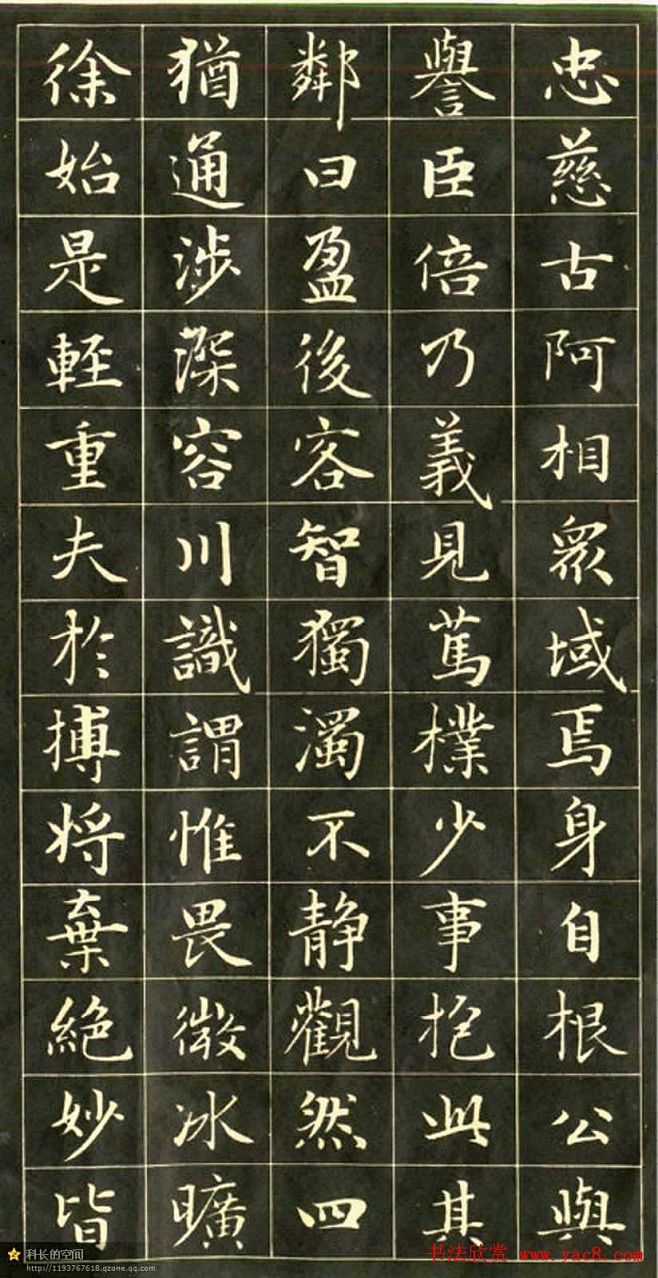 忠慈古阿相眾域焉身自根公與
譽臣倍乃義見篤樸少事抱此其
鄰曰盈後客智獨濁不静觀然四
猶通涉深容川識謂惟畏微冰曠
徐始是輕重夫於搏将棄絕妙皆
科长的空间
http://1193767618.qzone.qq.com
书法欣赏 www.yac8.com